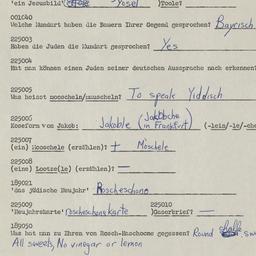 'ein Jesusbild' Yosel )Toole?
001040
Welche Mundart haben die Bauern Ihrer Gegend gesprochen? Bayrisch
225003
Haben die Juden die Mundart gesprochen? Yes
225004
Hat man können einen Juden seiner deutschen Aussprache nach erkennen?
225005
Was heisst mocscheln/mauscheln? To speak Yiddisch
225006
Koseform von Jakob: Jakoble (Jaköbche in Frankfurt) (-lein/-le/-che
225007
(ein) Moschele (erzählen)? + Moschele
225008
(eine) Lootze(le) (erzählen)? —
189021
'das jüdische Neujahr' Roscheschono
225009 225010
'Neujahrskarte' roscheschonekarte )Gaserbrief? —
189050
Was hat man zu Ihren von Rosch-Haschoone gegessen? Round challe, sw
All sweets, No vinegar or lemon